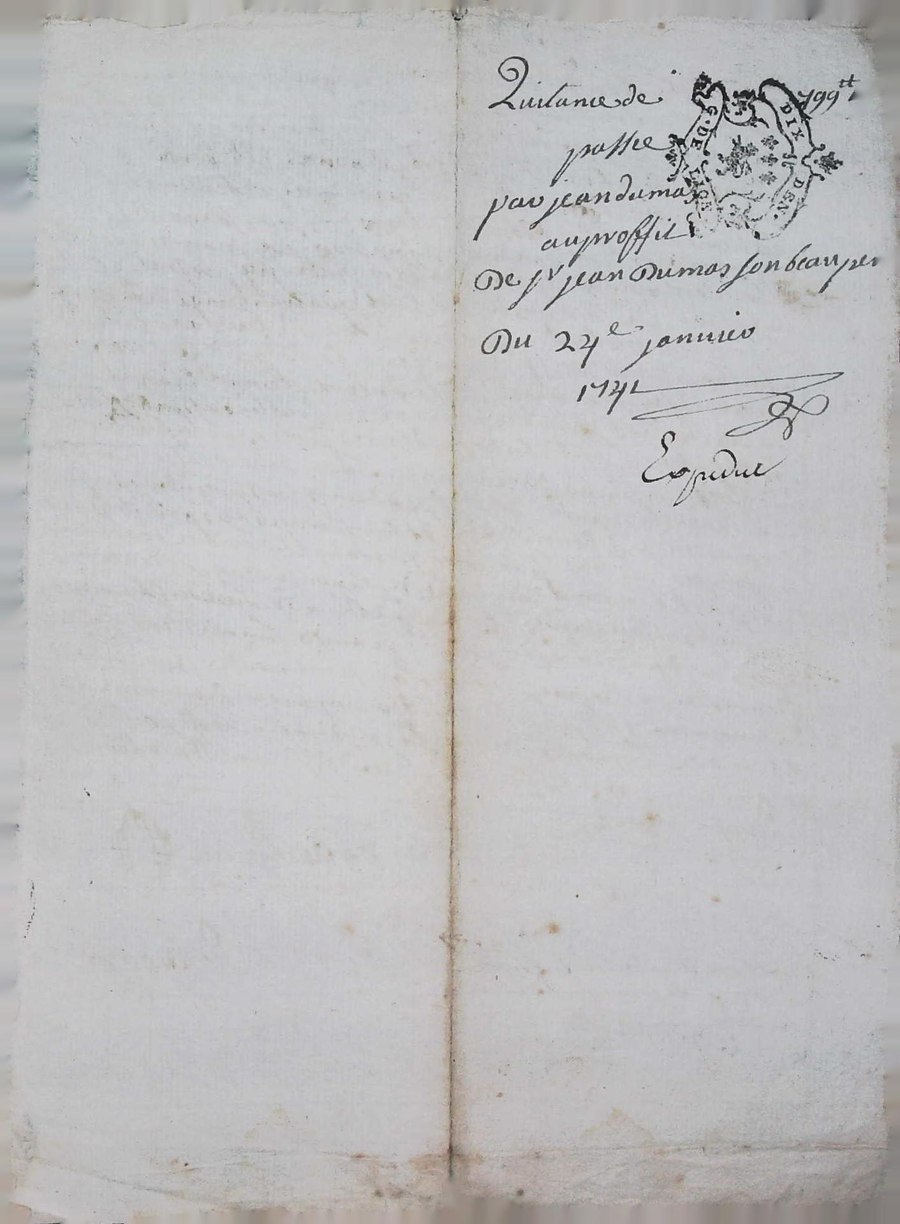 Quitance de 799tt
passée
par jean dumas
au proffit
De sr jean Dumas son beau per
Du 24e janvier
1741
Expediee
G. DE
DIX DEN.